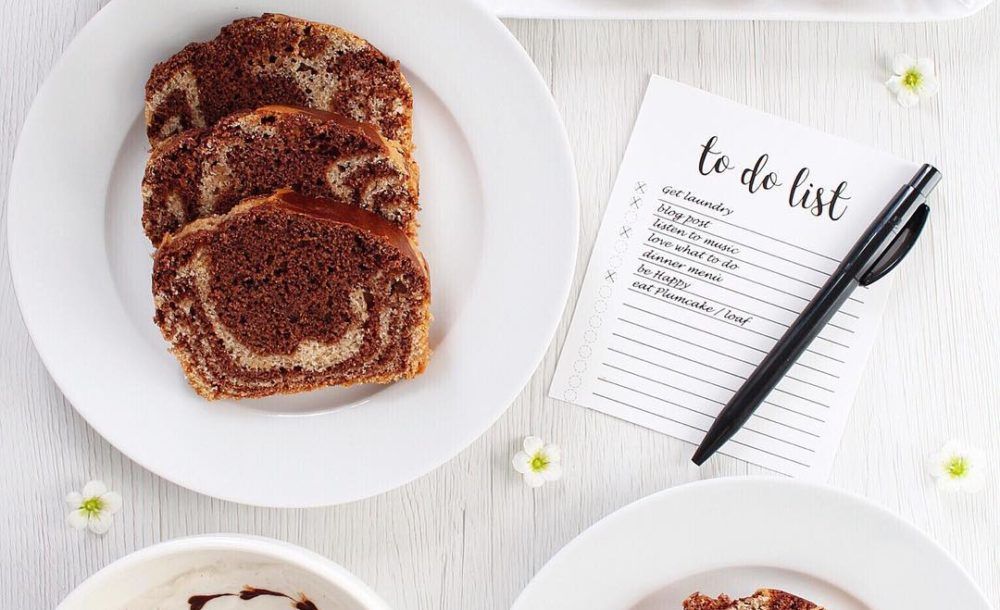 to do list
Get laundry
blog post
listen to music
love what to do
dinner menù
be Happy
eat Plumcake / loaf